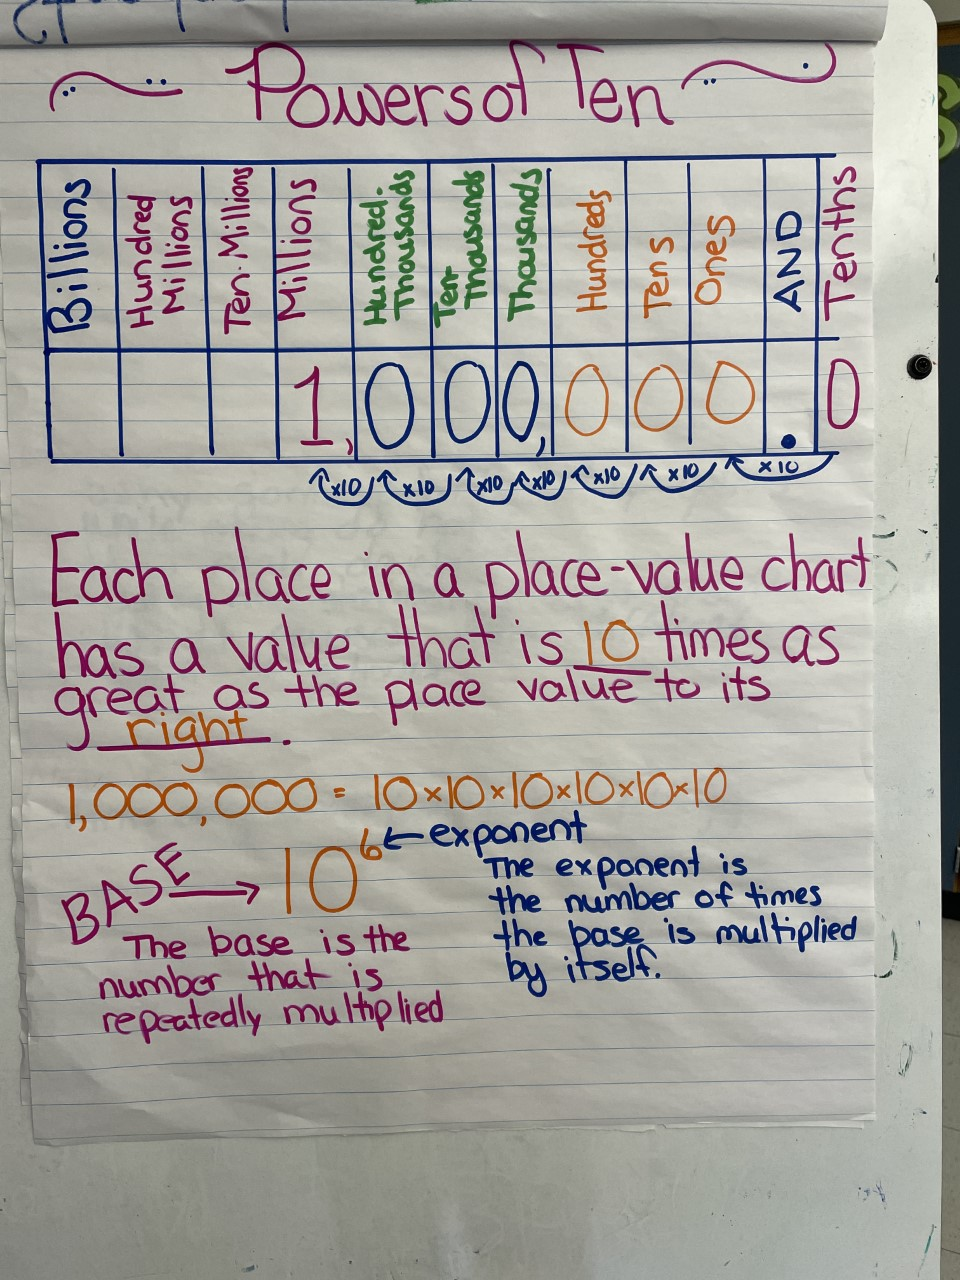 Powers of Ten
Billions
Hundred Millions
Ten-Millions
Millions
Hundred-Thousands
Ten Thousands
Thousands
Hundreds
Tens
Ones
AND
Tenths
1,000,000.0
x10 x10 x10 x10 x10 x10 x10
Each place in a place-value chart
has a value that is 10 times as
great as the place value to its
right.
1,000,000 = 10×10×10×10×10×10
BASE → 10⁶ ← exponent
The exponent is
the number of times
the base is multiplied
by itself.
The base is the
number that is
repeatedly multiplied